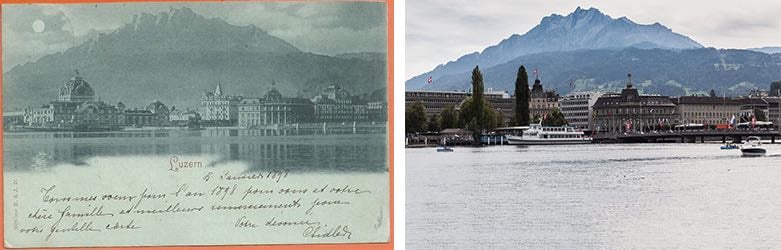 Luzern
5 Janvier 1898
Tous mes voeux pour l'an 1898 pour vous et votre
chère famille et meilleurs remerciements pour
votre gentille carte
Votre